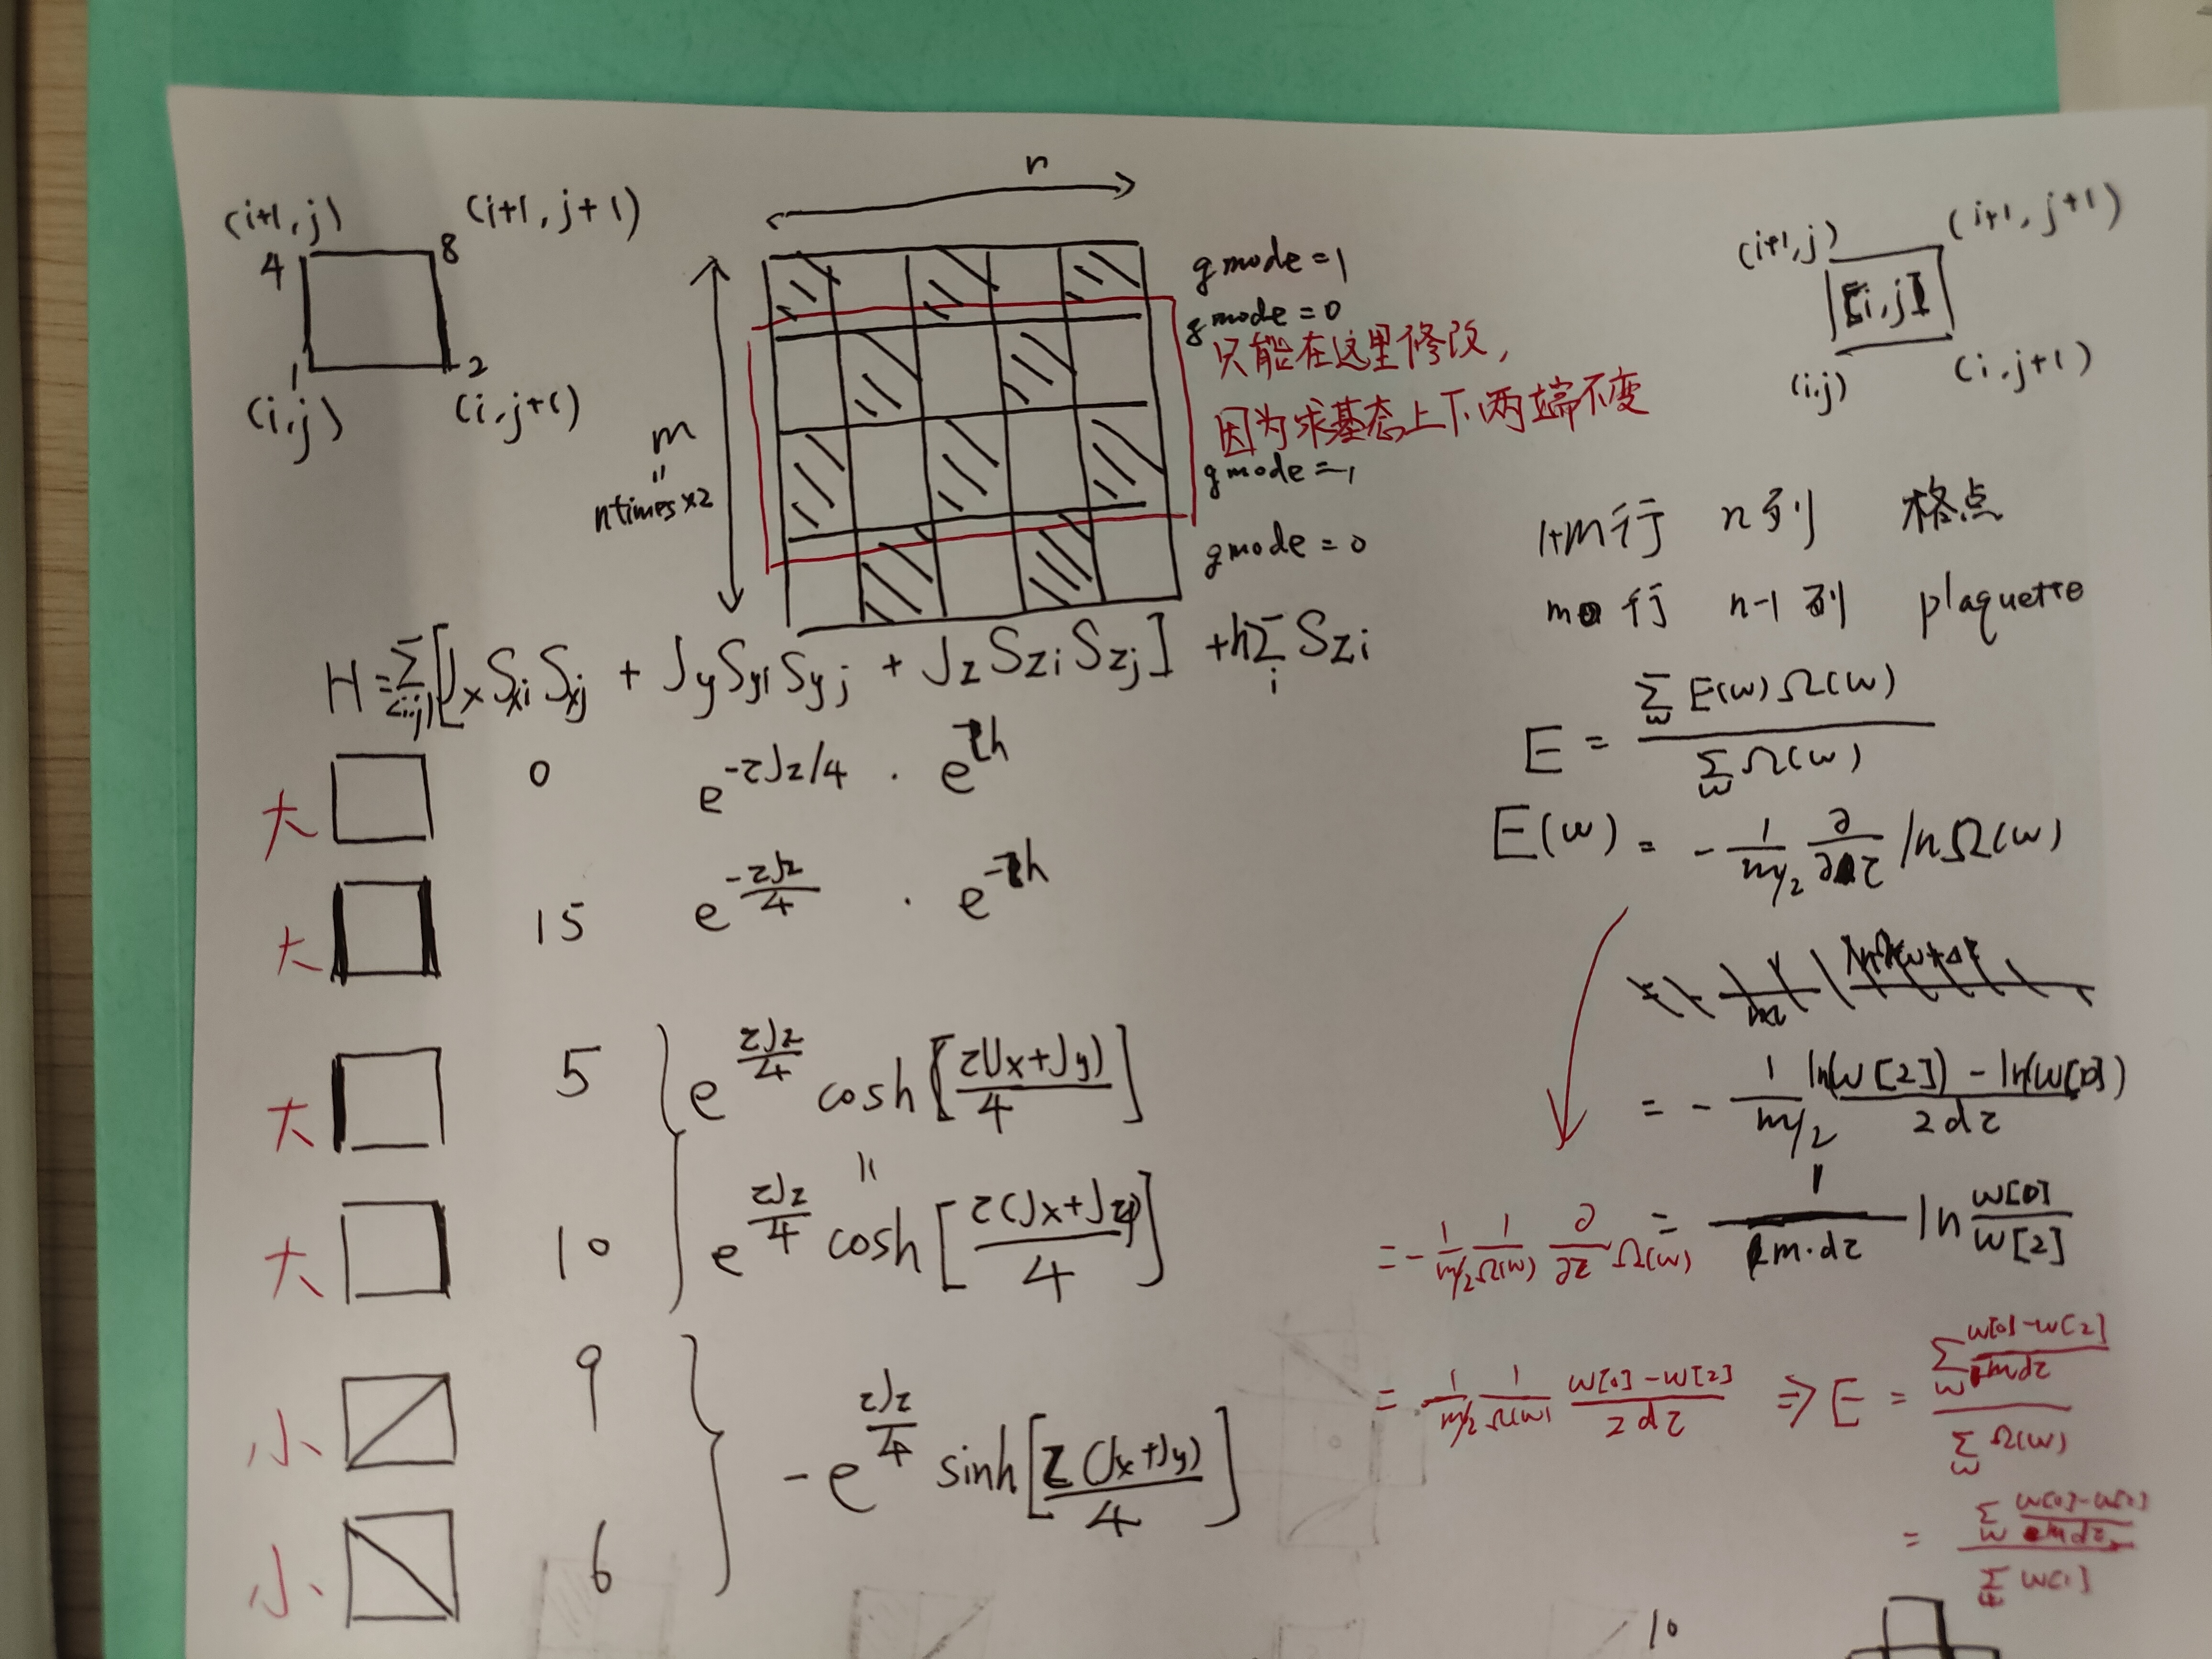 n
(i+1,j) (i+1,j+1)
4 8
1 2
(i,j) (i,j+1)
m
"
ntimes×2
gmode=1
gmode=0
只能在这里修改,
因为求基态上下两端不变
gmode=1
gmode=0
(i+1,j) (i+1,j+1)
[i,j]
(i,j) (i,j+1)
1+m行 n列 格点
m行 n-1列 plaquette
H=Σ<i,j>[JxSxiSxj + JySyiSyj + JzSziSzj] +hΣi Szi
大 0 e^(-τJz/4) · e^(τh)
大 15 e^(-τJz/4) · e^(-τh)
大 5 e^(τJz/4) cosh[τ(Jx+Jy)/4]
"
大 10 e^(τJz/4) cosh[τ(Jx+Jz)/4]
小 9
小 6
-e^(τJz/4) sinh[τ(Jx+Jy)/4]
E = Σw E(w)Ω(w) / Σw Ω(w)
E(w) = -1/(m/2) ∂/∂τ lnΩ(w)
= -1/(m/2) (ln(w[2]) - ln(w[0]))/(2dτ)
= 1/(m·dτ) ln w[0]/w[2]
= -1/(m/2) 1/Ω(w) ∂/∂τ Ω(w)
= 1/(m/2) 1/Ω(w) (w[0]-w[2])/(2dτ) ⇒ E = Σw (w[0]-w[2])/(mdτ) / Σw Ω(w)
= Σw (w[0]-w[2])/(mdτ) / Σ w[1]
10